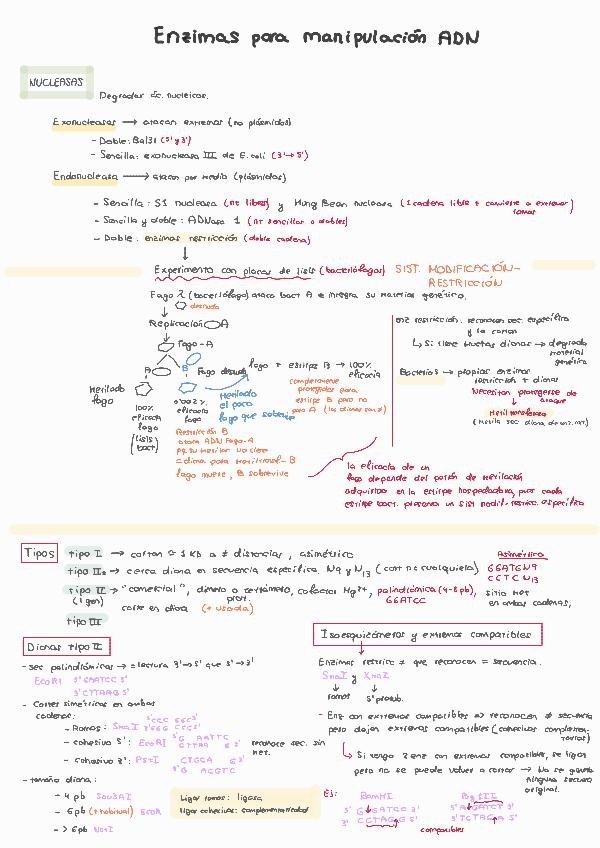 Enzimas para manipulación ADN
NUCLEASAS
Degradar ác. nucleicos.
Exonucleasas → atacan extremos (no plásmidos)
- Doble: Bal31 (5' y 3')
- Sencilla: exonucleasa III de E. coli (3'→5')
Endonucleasa → atacan por medio (plásmidos)
- Sencilla: S1 nucleasa (nt libres) y Mung Bean nucleasa (1 cadena libre + convierte a extremos romos
- Sencilla y doble: ADNasa 1 (nt sencillos o dobles)
- Doble: enzimas restricción (doble cadena)
Experimento con placas de lisis (bacteriófagos) SIST. MODIFICACIÓN-
RESTRICCIÓN
Fago λ (bacteriófago) ataca bact A e integra su material genético.
desnudo
Replicación A
Fago-A
A B Fago desnudo
fago + estirpe B → 100%
eficacia
Metilado
fago
100%
eficacia
fago
(lisis
bact)
eficacia
fago
Metilado
el poco
fago que sobrevive
completamente
protegidos para
estirpe B pero no
para A
Restricción B
ataca ADN Fago-A
fago muere, B sobrevive
enz restricción: reconocen sec. específica
y la cortan
↳ Si tiene muchas dianas → degrada
material
genético
Bacterias → propias enzimas
restricción + dianas
Necesitan protegerse de
ataque
Metiltransferasa
la eficacia de un
fago depende del patrón de metilación
adquirido en la estirpe hospedadora, pues cada
estirpe bact. presenta un sist modif-restric. específico
Tipos
tipo I → cortan ≈ 1 Kb a ≠ distancias, asimétrico
tipo IIs → cerca diana en secuencia específica, N9 y N13 (cort nt cualquiera)
Asimétrico
GGATGN9
CCTCN13
tipo II → "comercial", dímero o tetrámero, cofactor Mg2+, palindrómica (4-8pb),
(1 gen) prot.
corte en diana (+ usada) GGATCC
sitio nt
en ambas cadenas,
tipo III
Dianas tipo II
- Sec palindrómicas → = lectura 3'→5' que 5'→3'
EcoRI 5' GAATTC 3'
3' CTTAAG 5'
- Cortes simétricos en ambas
cadenas:
- Romos: SmaI 5'CCC GGG3'
3'GGG CCC5'
- cohesivo 5': EcoRI 5'G AATTC
CTTAA G 5'
reconoce sec. sin
met.
- cohesivo 3': PstI CTGCA G3'
5'G ACGTC
- tamaño diana:
→ 4 pb Sau3AI
→ 6pb (+ habitual) EcoR
→ > 6pb NotI
Ligar romos: ligasa
Ligar cohesivos: complementariedad
Isoesquizómeros y extremos compatibles
Enzimas restricc ≠ que reconocen = secuencia.
SmaI y XmaI
romos 5' protub.
- Enz con extremos compatibles => reconocen ≠ secuencia
pero dejan extremos compatibles (cohesivos complemen-
tarios)
↳ Si tengo 2 enz con extremos compatibles, se ligan
pero no se puede volver a cortar → No se genera
ninguna secuencia
original.
Ej: BamHI BglII
5' GGATCC 3' 5' AGATCT 3'
3' CCTAGG 5' 3' TCTAGA 5'
compatibles